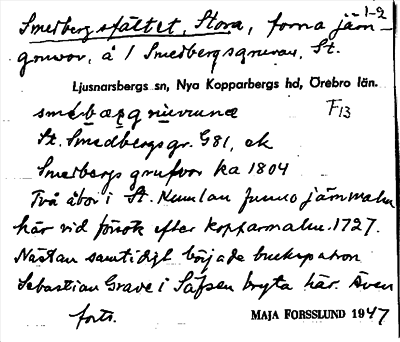 1-2
Smedbergsfältet, Stora, forna järn-
gruvor, å 1 Smedbergsgruvan, St.
Ljusnarsbergs sn, Nya Kopparbergs hd, Örebro län.
F13
St. Smedbergsgr. G81, ek
Smedbergs grufvor ka 1804
Två åbor i St. Kumlan funno järnmalm
här vid försök efter kopparmalm. 1727.
Nästan samtidigt började brukspatron
Sebastian Grave i Säfsen bryta här. Även
forts.
MAJA FORSSLUND 1947